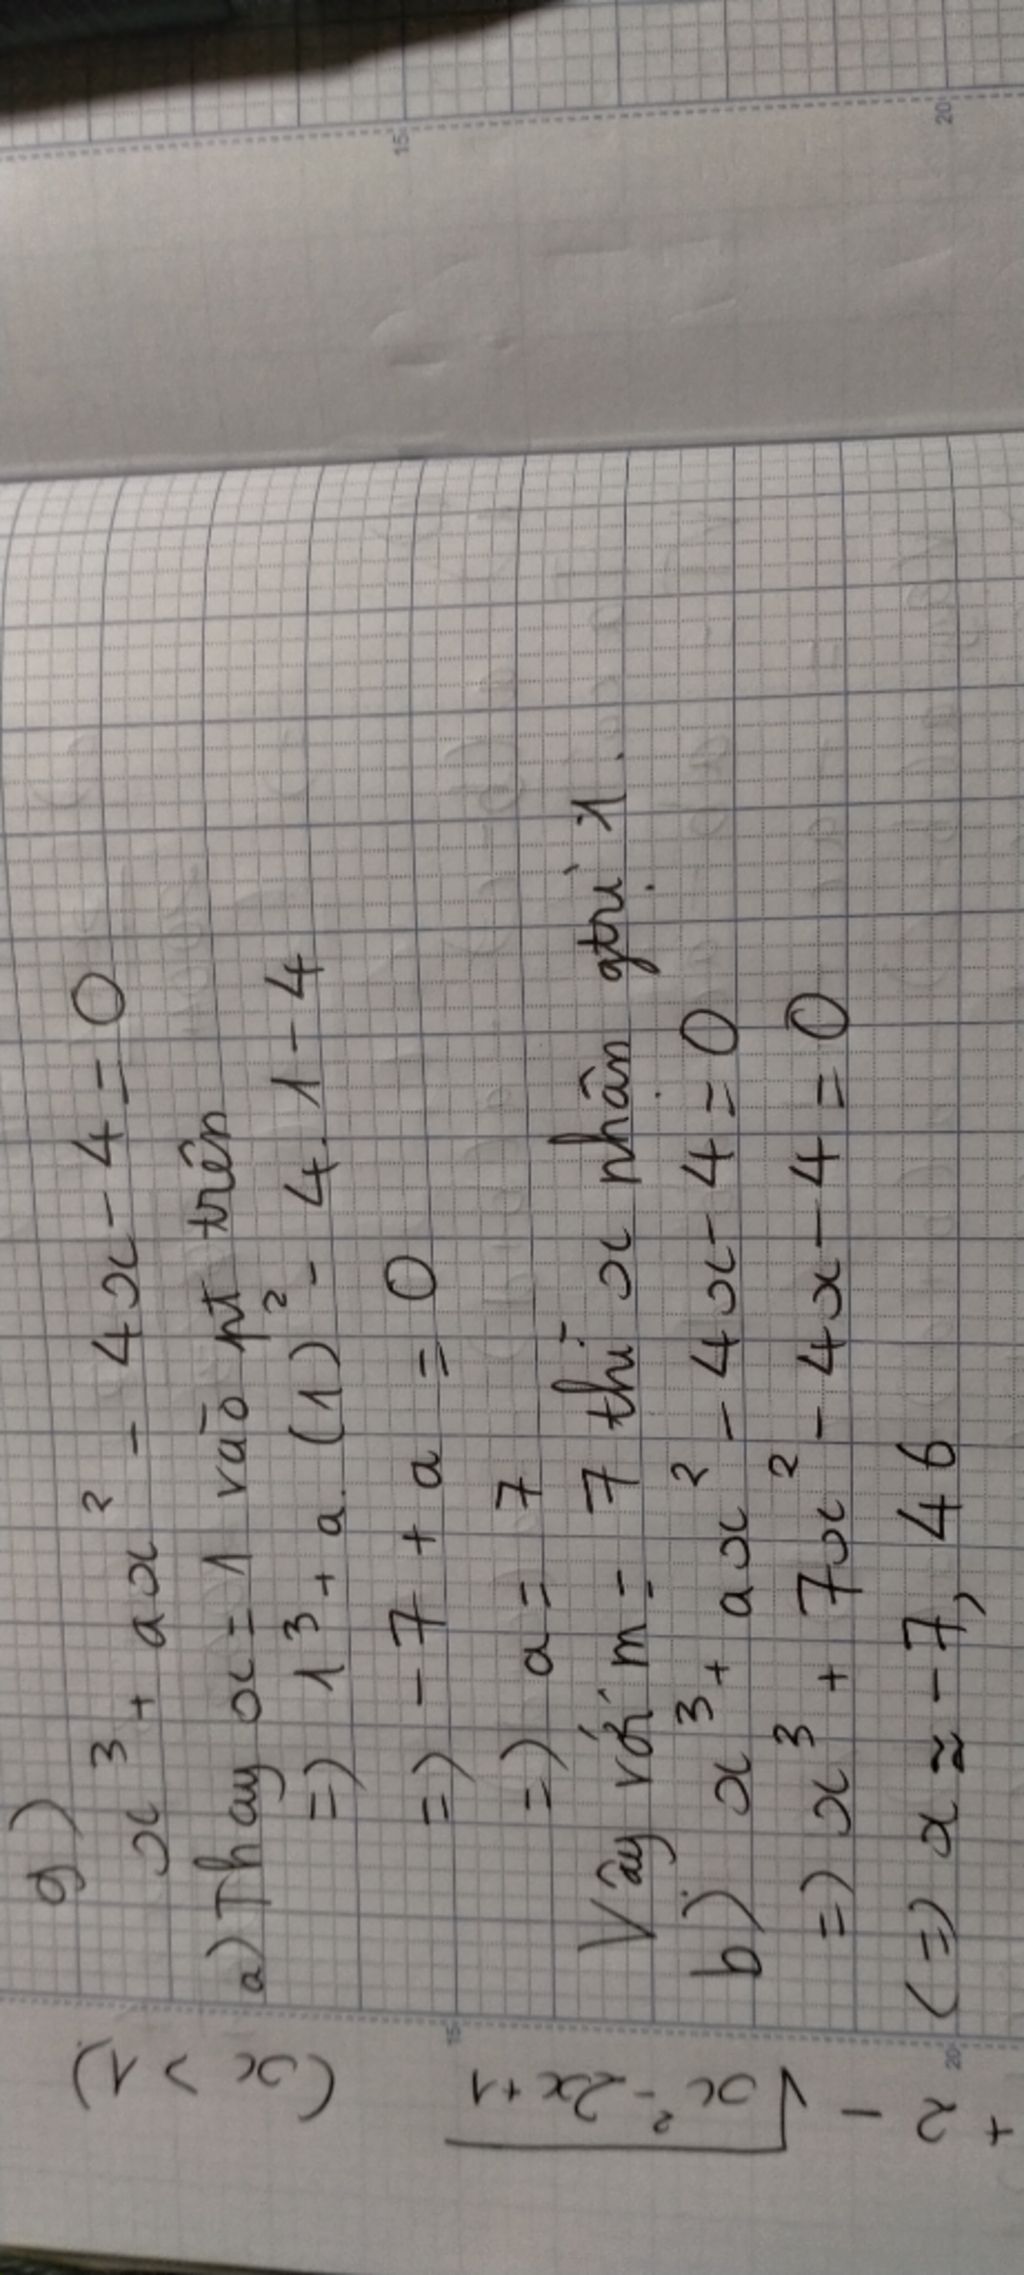 g)
x³ + ax² - 4x - 4 = 0
a) Thay x = 1 vào pt trên
=) 1³ + a. (1)² - 4. 1 - 4
=) - 7 + a = 0
=) a = 7
Vậy với m = 7 thì x nhận gtrị 1.
b) x³ + ax² - 4x - 4 = 0
=) x³ + 7x² - 4x - 4 = 0
(=) x ≈ - 7, 46
(x > 1)
√x² - 2x + 1
+ 2 -
15
20
15
20